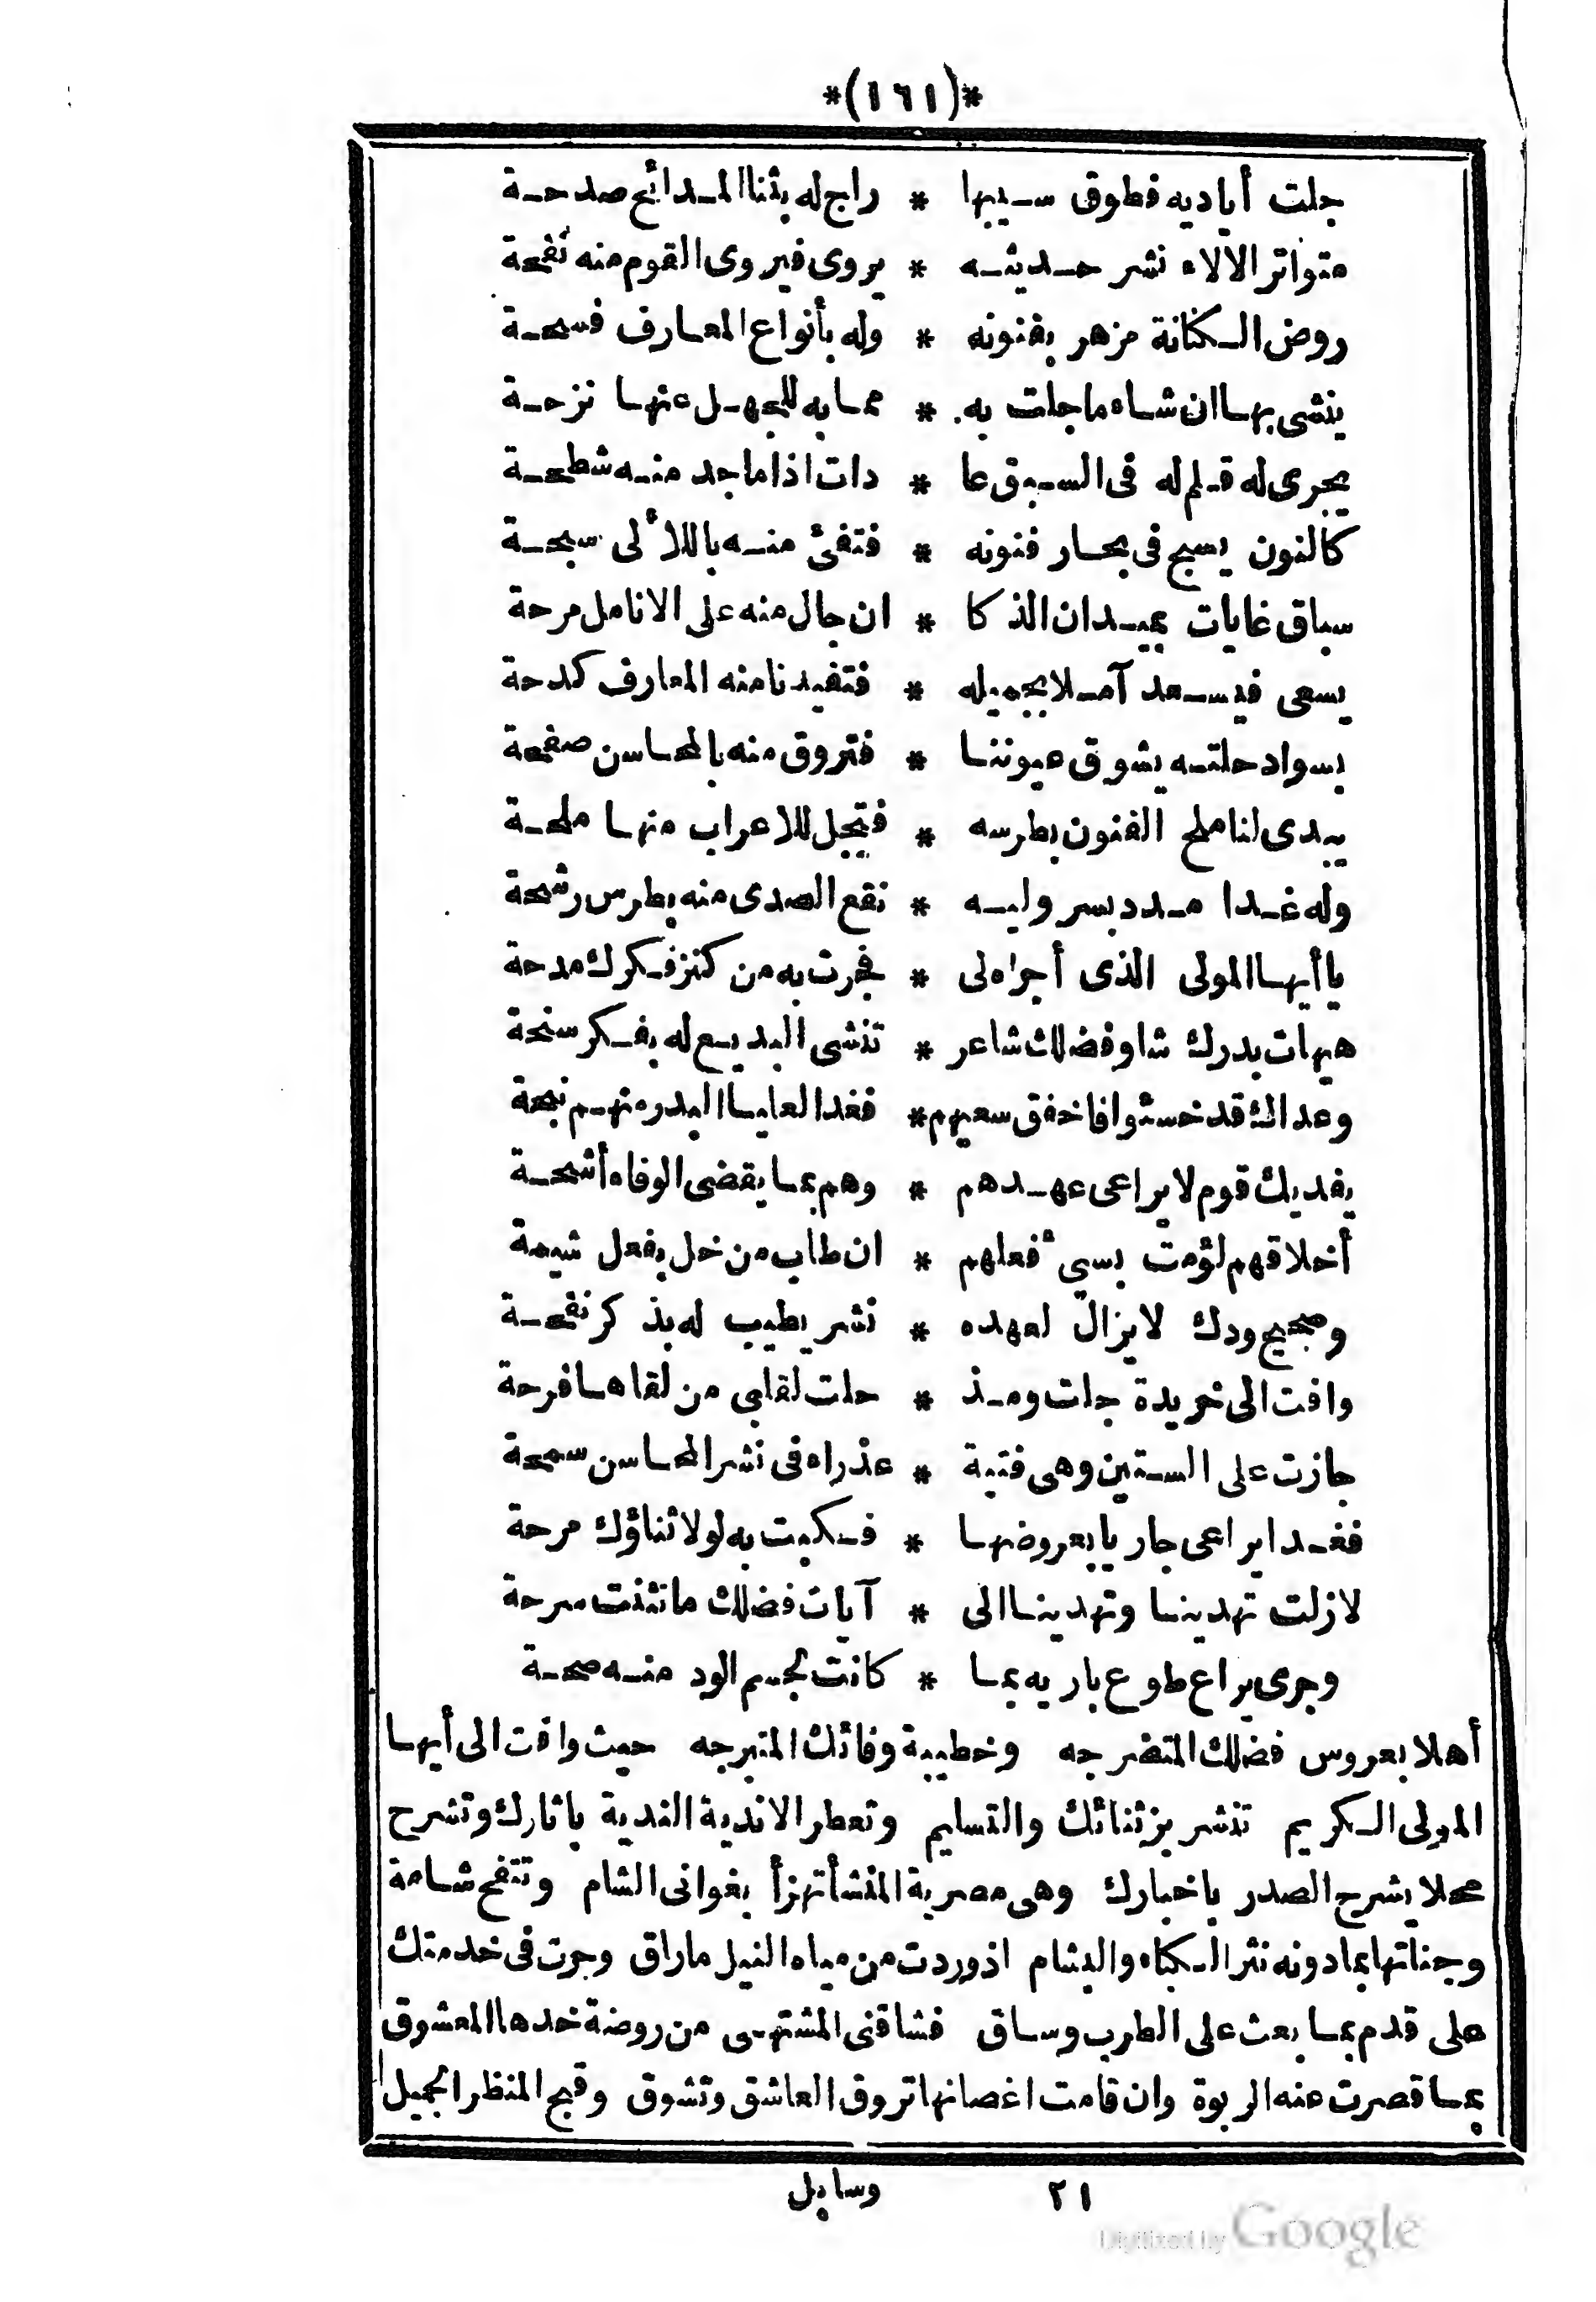 *(١٦١)*
جلت أياديه فطوق سيبها * راج له بثنا المدائح صدحة
متواتر الالاء نشر حديثه * يروى فيروى القوم منه نفحة
روض الكنانة مزهر بفنونه * وله بأنواع المعارف فسحة
ينشى بها ان شاء ما جلت به * مما به للجهل عنها نزحة
يجرى له قلم له فى السبق عا * دات اذا ما جد منه شطحة
كالنون يسبح فى بحار فنونه * فتفئ منه باللألى سبحة
سباق غايات بميدان الذكا * ان جال منه على الانامل مرحة
يسعى فيسعد آملا بجميله * فتفيدنا منه المعارف كدحة
بسواد حلته يشوق عيوننا * فتروق منه بالمحاسن صفحة
يبدى لنا ملح الفنون بطرسه * فتجل للاعراب منها ملحة
وله غدا مدد بسر وليه * نقع الصدى منه بطرس رشحة
يا أيها المولى الذى أجراه لى * فجرت به من كنز فكرك مدحة
هيهات يدرك شاو فضلك شاعر * تنشى البديع له بفكر سنحة
وعداك قد خسئوا فاخفق سعيهم * فغدا لعليا البدر منهم نبحة
يفديك قوم لا يراعى عهدهم * وهم بما يقضى الوفاء أشحة
أخلاقهم لؤمت بسيئ فعلهم * ان طاب من خل بفعل شيمة
وصحيح ودك لا يزال لعهده * نشر يطيب له بذكر نفحة
وافت الى خريدة جلت ومذ * حلت لقلبى من لقاها فرحة
جازت على الستين وهى فتية * عذراء فى نشر المحاسن سمحة
فغدا يراعى جاريا بعروضها * فكبت به لولا ثناؤك مرحة
لا زلت تهدينا وتهدينا الى * آيات فضلك ما تثنت سرحة
وجرى يراع طوع باريه بما * كانت لجسم الود منه صحة
أهلا بعروس فضلك المتضرجه وخطيبة وفائك المتبرجه حيث وافت الى أيها
المولى الكريم تنشر بز ثنائك والتسليم وتعطر الاندية الندية باثارك وتشرح
محلا يشرح الصدر باخبارك وهى مصرية المنشأ تهزأ بغوانى الشام وتنفح شامة
وجناتها بما دونه نثر الكباء والبشام اذ وردت من مياه النيل ماراق وجرت فى خدمتك
على قدم بما بعث على الطرب وساق فشاقنى المشتهى من روضة خدها المعشوق
بما قصرت عنه الربوة وان قامت اغصانها تروق العاشق وتشوق وقبح المنظر الجميل
٢١ وسايل
Digitized by Google